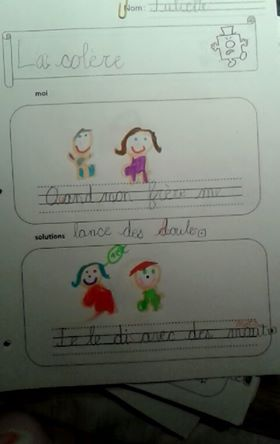 Nom:
La colère
moi
Quand mon frère me
lance des
solutions
Je le di avec des